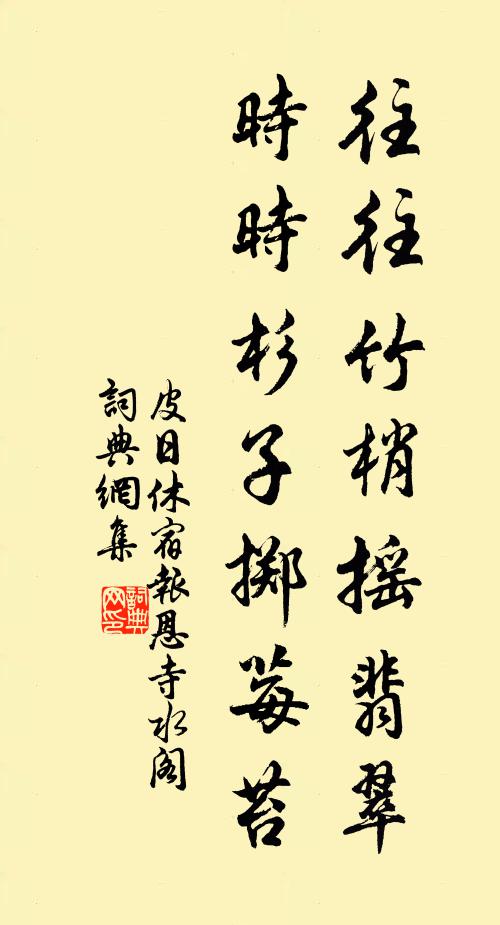 往往竹梢搖翡翠
時時杉子擲莓苔
皮日休宿報恩寺水阁
詞典網集
詞典网印